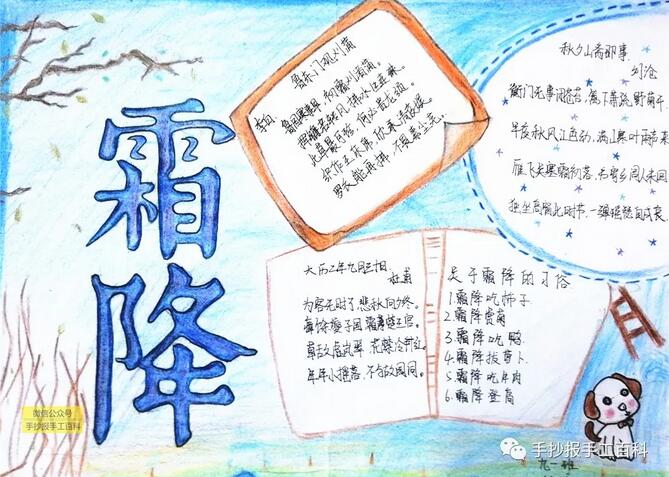 霜降
鲁东门观刈蒲
李白
鲁国寒事早，初霜刈渚蒲。
挥镰若转月，拂水生连珠。
此草最可珍，何必贵龙须。
织作玉床席，欣承清夜娱。
罗衣能再拂，不畏素尘芜。
秋夕山斋即事
刘沧
衡门无事闭苍苔，篱下萧疏野菊开。
半夜秋风江色动，满山寒叶雨声来。
雁飞关塞霜初落，书寄乡闾人未回。
独坐高窗此时节，一弹瑶瑟自成哀。
大历二年九月三十日
杜甫
为客无时了，悲秋向夕终。
瘴余夔子国，霜薄楚王宫。
草敌虚岚翠，花禁冷
年年小摇落，不与故园同。
关于霜降的习俗
1.霜降吃柿子
2.霜降赏菊
3.霜降吃鸭
4.霜降拔萝卜
5.霜降吃牛肉
6.霜降登高
微信公众号
手抄报手工百科
手抄报手工百科
九一班